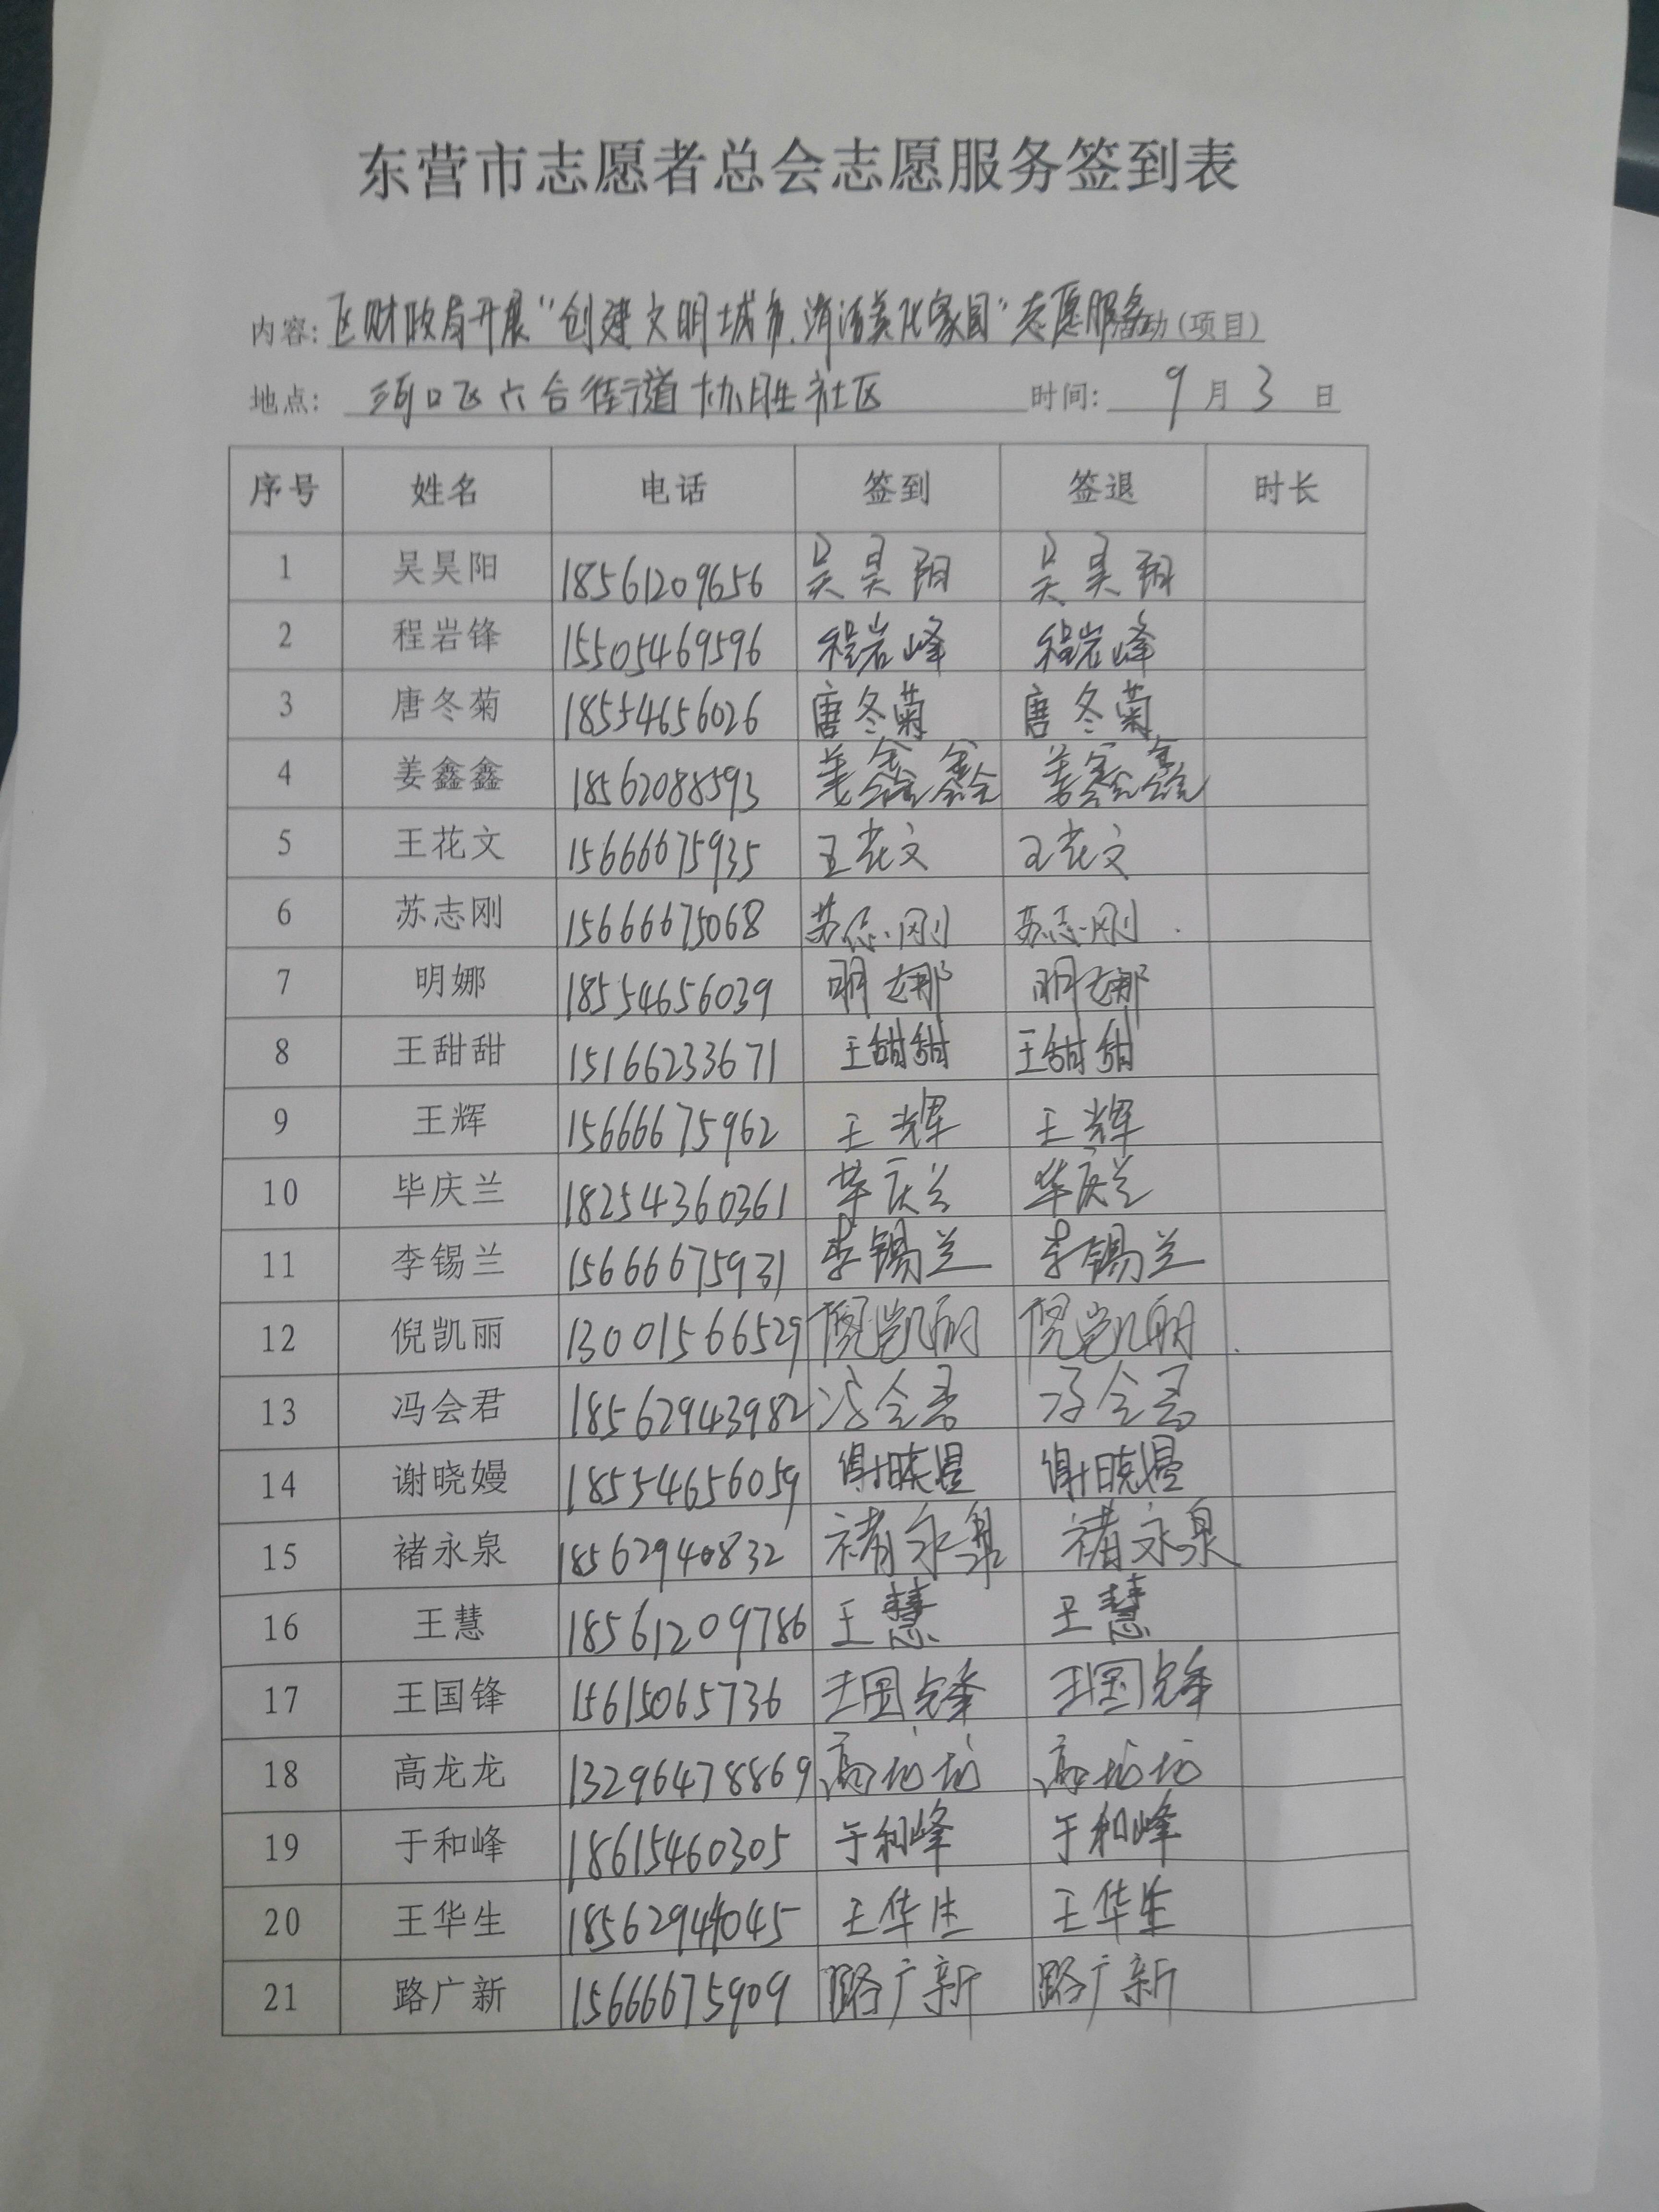 东营市志愿者总会志愿服务签到表
内容: 区财政局开展“创建文明城市,清洁美化家园”志愿服务活动(项目)
地点: 河口区六合街道协胜社区 时间: 9月3日
序号 姓名 电话 签到 签退 时长
1 吴昊阳 18561209656 吴昊阳 吴昊阳
2 程岩锋 15505469596 程岩峰 程岩峰
3 唐冬菊 18554656026 唐冬菊 唐冬菊
4 姜鑫鑫 18562088593 姜鑫鑫 姜鑫鑫
5 王花文 15666675935 王花文 王花文
6 苏志刚 15666675068 苏志刚 苏志刚
7 明娜 18554656039 明娜 明娜
8 王甜甜 15166233671 王甜甜 王甜甜
9 王辉 15666675962 王辉 王辉
10 毕庆兰 18254360361 毕庆兰 毕庆兰
11 李锡兰 15666675931 李锡兰 李锡兰
12 倪凯丽 13001566529 倪凯丽 倪凯丽
13 冯会君 18562943982 冯会君 冯会君
14 谢晓嫚 18554656059 谢晓嫚 谢晓嫚
15 褚永泉 18562940832 褚永泉 褚永泉
16 王慧 18561209786 王慧 王慧
17 王国锋 15615065736 王国锋 王国锋
18 高龙龙 13296478869 高龙龙 高龙龙
19 于和峰 18615460305 于和峰 于和峰
20 王华生 18562944045 王华生 王华生
21 路广新 15666675909 路广新 路广新